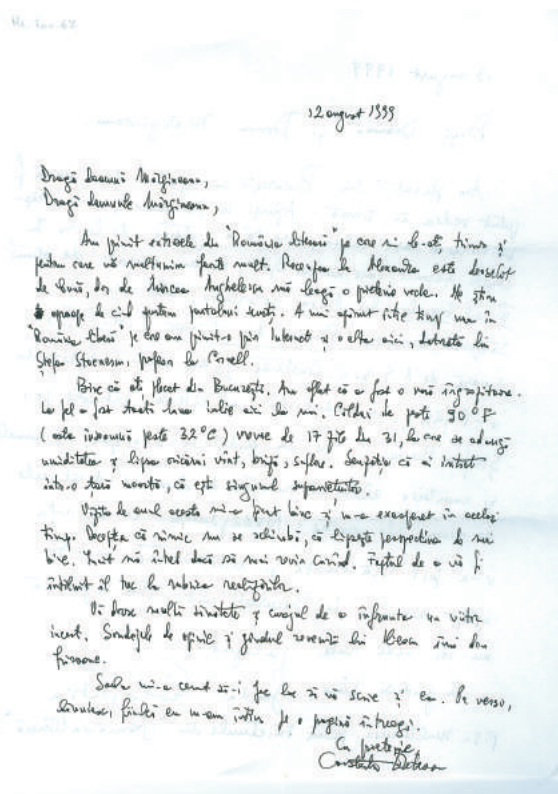 12 august 1999
Dragă Doamnă Mărgineanu,
Dragă Domnule Mărgineanu,
Am primit extrasele din "România literară" pe care ni le-ați trimis și
pentru care vă mulțumim foarte mult. Recenzia la Alexandra este deosebit
de bună, dar de Mircea Anghelescu mă leagă o prietenie veche. Ne știm
aproape de cînd purtam pantaloni scurți. A mai apărut între timp una în
"România liberă" pe care am primit-o prin Internet și o alta aici, datorată lui
Ștefan Stoenescu, profesor la Cornell.
Bine că ați plecat din București. Am aflat că a fost o vară îngrozitoare.
La fel a fost toată luna iulie aici la noi. Călduri de peste 90°F
(asta înseamnă peste 32°C) vreme de 17 zile din 31, la care se adaugă
umiditatea și lipsa oricărui vînt, briză, suflare. Senzația că ai intrat
într-o țară moartă, că ești singurul supraviețuitor.
Vizita de anul acesta mi-a făcut bine și m-a exasperat în același
timp. Decepția că nimic nu se schimbă, că lipsește perspectiva de mai
bine. Încît mă întreb dacă să mai revin curînd. Faptul de a vă fi
întîlnit îl trec la rubrica realizărilor.
Vă doresc multă sănătate și curajul de a înfrunta un viitor
incert. Sondajele de opinie și gîndul revenirii lui Iliescu îmi dau
frisoane.
Sanda mi-a cerut să-i fac loc să vă scrie și ea. Pe verso,
fiindcă eu m-am întins pe o pagină întreagă.
Cu prietenie,